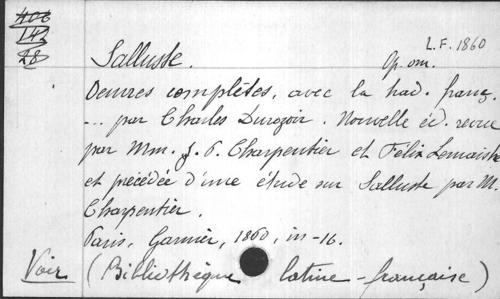 406
143
28
L.F. 1860
Salluste.
Op. om.
Oeuvres complètes, avec la trad. franç.
... par Charles Durozoir. Nouvelle éd. revue
par Mm. J. P. Charpentier et Félix Lemaistre
et précédée d'une étude sur Salluste par M.
Charpentier.
Paris, Garnier, 1860, in-16.
Voir (Bibliothèque latine-française)